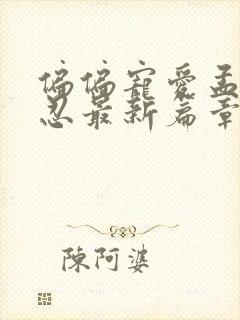 偏偏寵愛孟
忍最新篇章
陳阿婆